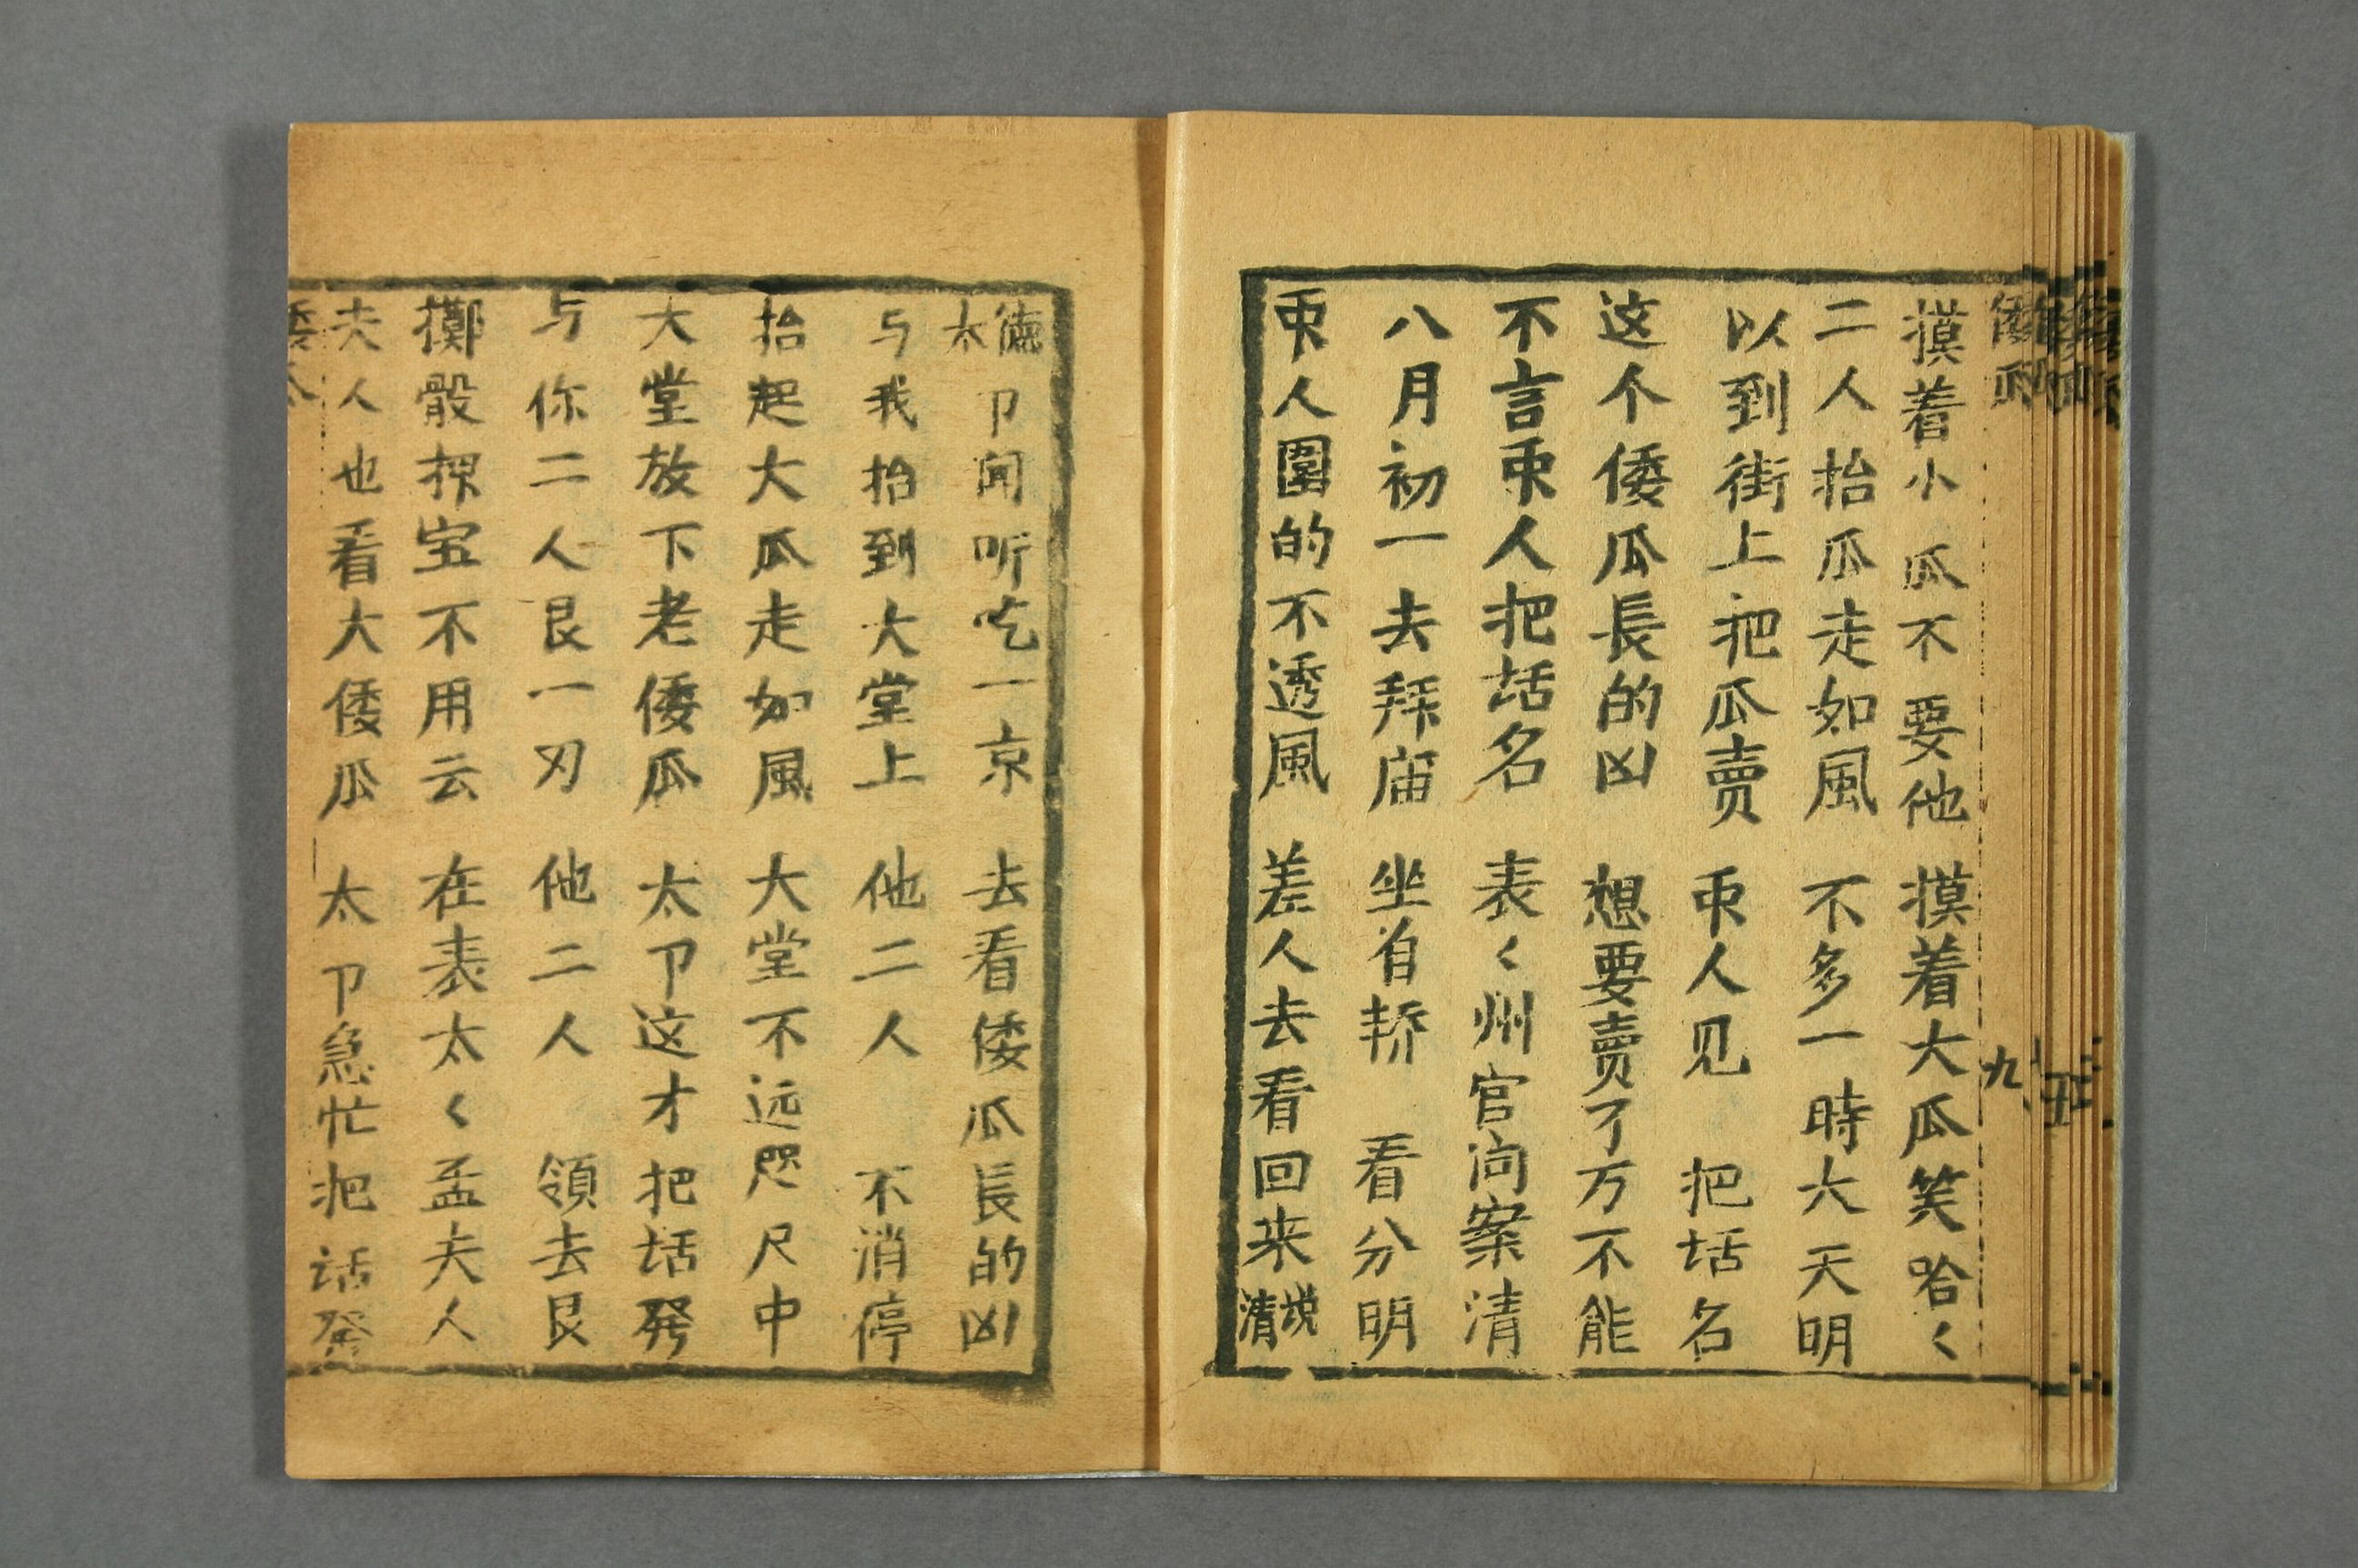 倭瓜 九
摸着小瓜不要他 摸着大瓜笑哈〱
二人抬瓜走如風 不多一時大天明
以到街上把瓜賣 𠂔人见 把话名
这个倭瓜長的凶 想要賣了万不能
不言𠂔人把话名 表〱州官向案清
八月初一去拜庙 坐自轿 看分明
𠂔人圍的不透風 差人去看回来說清
德太卩闻听吃一京 去看倭瓜長的凶
与我抬到大堂上 他二人 不消停
抬起大瓜走如風 大堂不远咫尺中
大堂放下老倭瓜 太卩这才把话発
与你二人艮一刃 他二人 領去艮
擲骰押宝不用云 在表太〱孟夫人
夫人也看大倭瓜 太卩急忙把话発